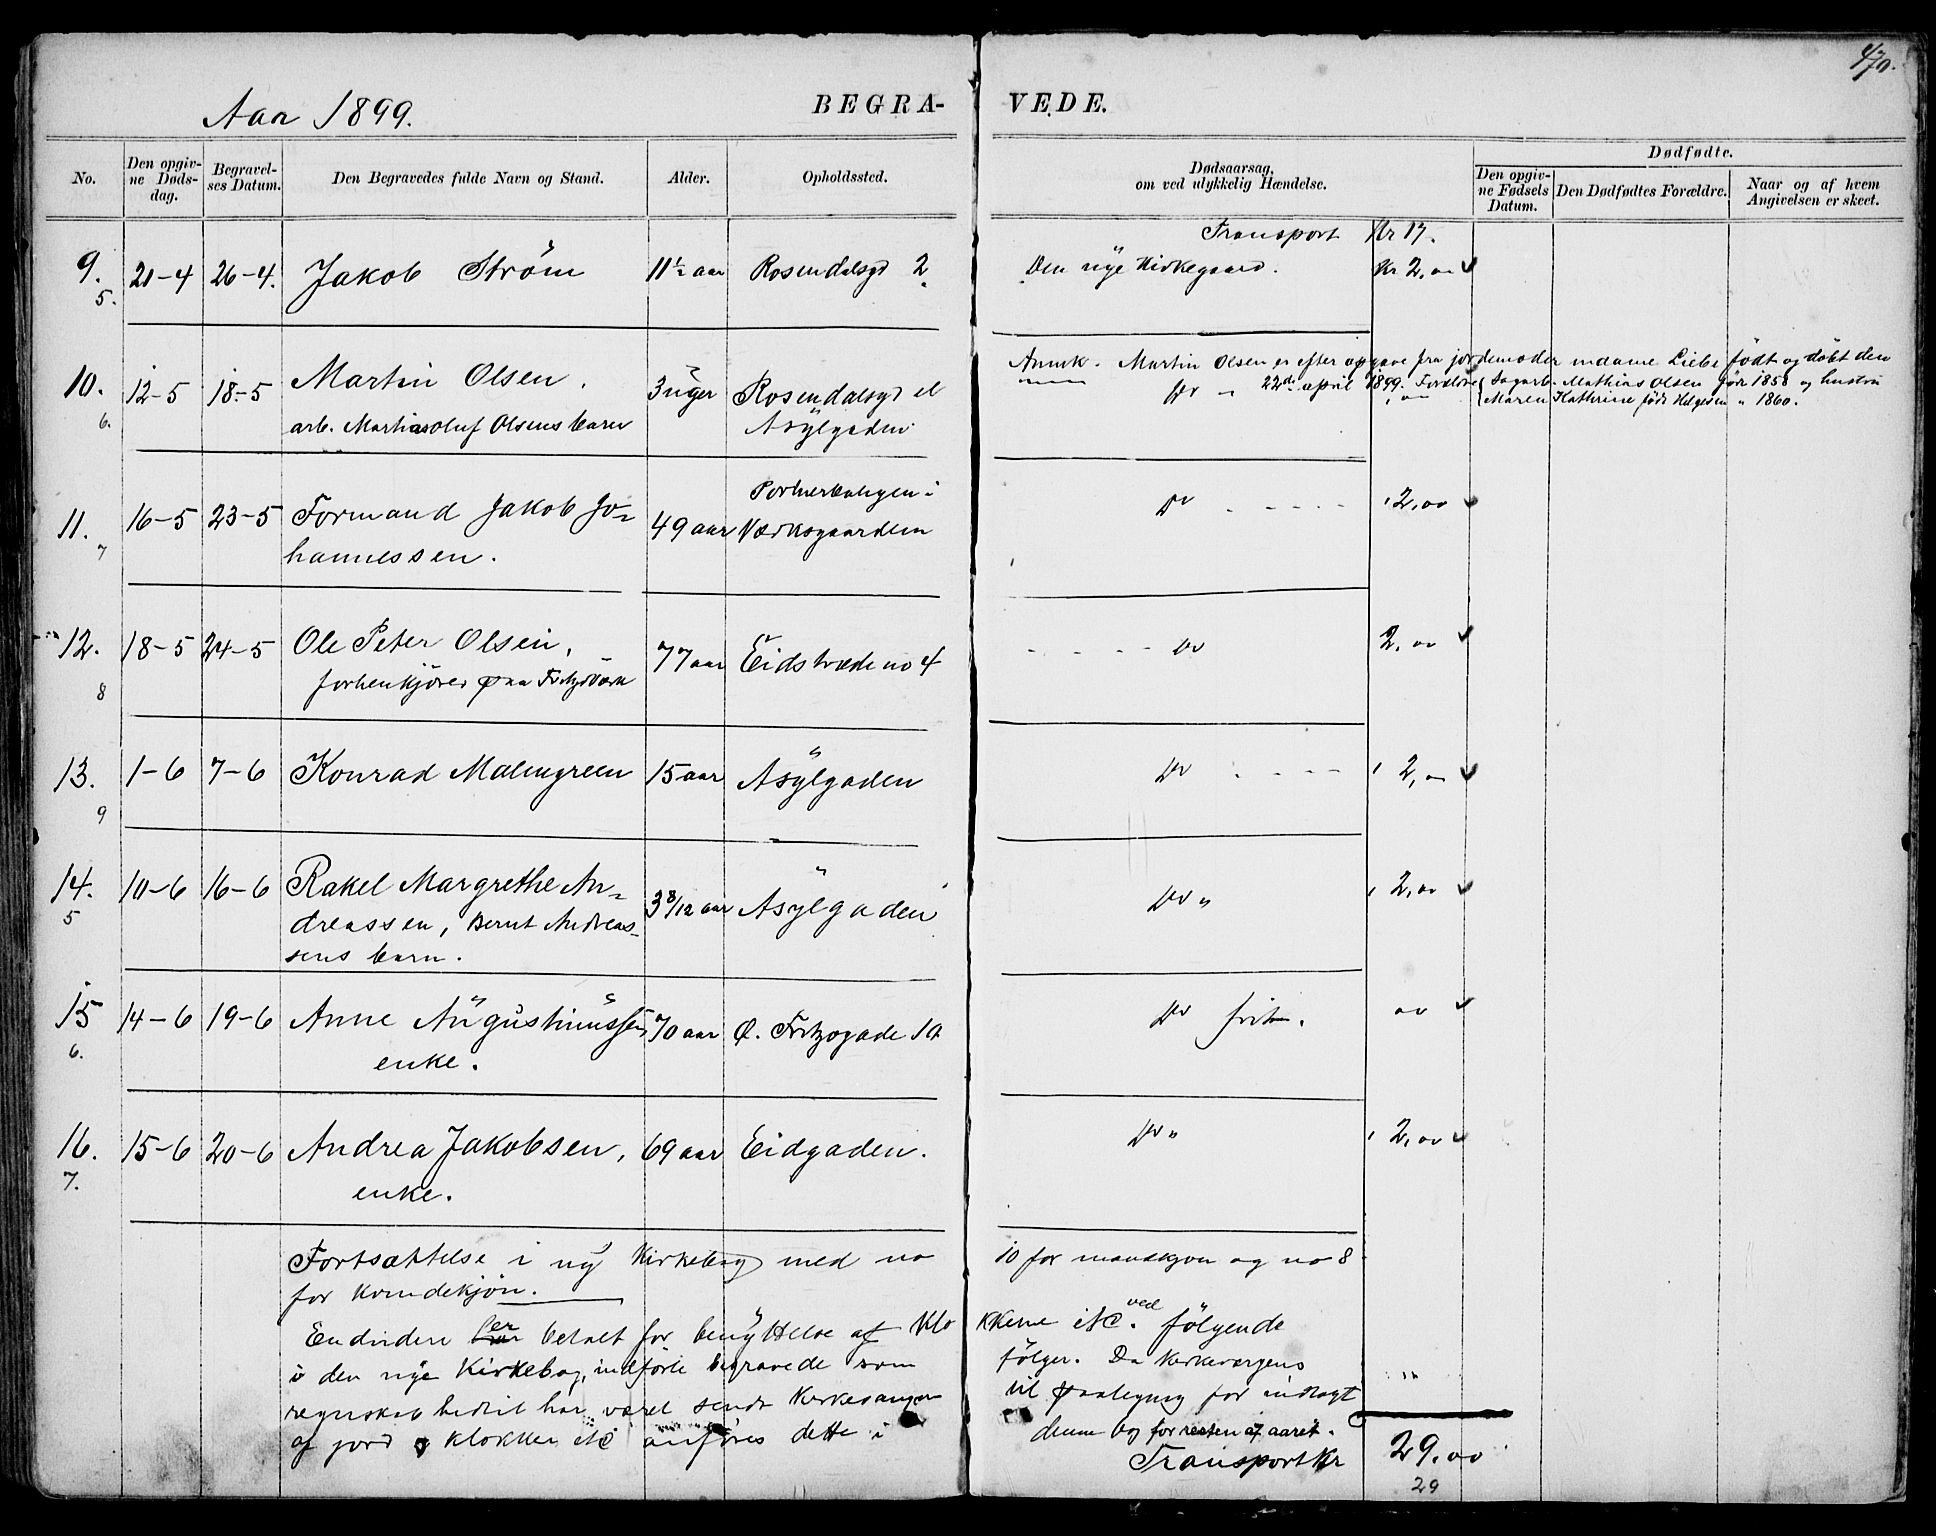 Aar 1899.
BEGRA-
VEDE.
No.
Den opgiv-
ne Døds-
dag.
Begravel-
ses Datum.
Den Begravedes fulde Navn og Stand.
Alder.
Opholdssted.
Dødsaarsag,
om ved ulykkelig Hændelse.
Dødfødte.
Den opgiv-
ne Fødsels
Datum.
Den Dødfødtes Forældre.
Naar og af hvem
Angivelsen er skeet.
Transport Kr 17.
9. 21-4 26-4. Jakob Strøm 11½ aar Rosendalsgd 2 Den nye Kirkegaard. Kr 2,00
5.
Anmk. Martin Olsen er efter opgave fra jordemoder madame Liebe født og døbt den
10. 12-5 18-5 Martin Olsen. 3 uger Rosendalsgd el Do 22de april 1899. Forældre Sagarb. Mathias Olsen født 1858 og hustru
Maren Kathrine født Helgesen " 1860.
6. arb. Olsens barn Asylgaden
Portnerboligen i
11. 16-5 23-5 Formand Jakob Jo- 49 aar Værksgaarden Do 2,00
7 hannessen.
12. 18-5 24-5 Ole Peter Olsen, 77 aar Eidstræde no 4 Do 2,00
8 forhenkjører paa Fritzøværk
13. 1-6 7-6 Konrad Malmgreen 15 aar Asylgaden Do 2,00
9
14. 10-6 16-6 Rakel Margrethe An- 3 8/12 aar Asylgaden Do " 2,00
5 dreassen, Bernt Andreas-
sens barn.
15 14-6 19-6 Anne Augustinussen, 70 aar Ø. Fritzøgade 10 Do frit. 00
6. enke.
16. 15-6 20-6 Andrea Jakobsen, 69 aar Eidgaden. Do " 2,00
7. enke.
Fortsættelse i ny Kirkebog med no 10 for mandkjøn og no 8
for kvindekjøn.
Endvidere er betalt for benyttelse af klokkerne etc. ved følgende
i den nye Kirkebog indførte begravede som følger. Da kirkevergens
regnskab hidtil har været sendt Kirkesanger til paategning for indlagt
af jord og klokker etc anføres dette i denne bog for resten af aaret.
Transport Kr 29.00
29